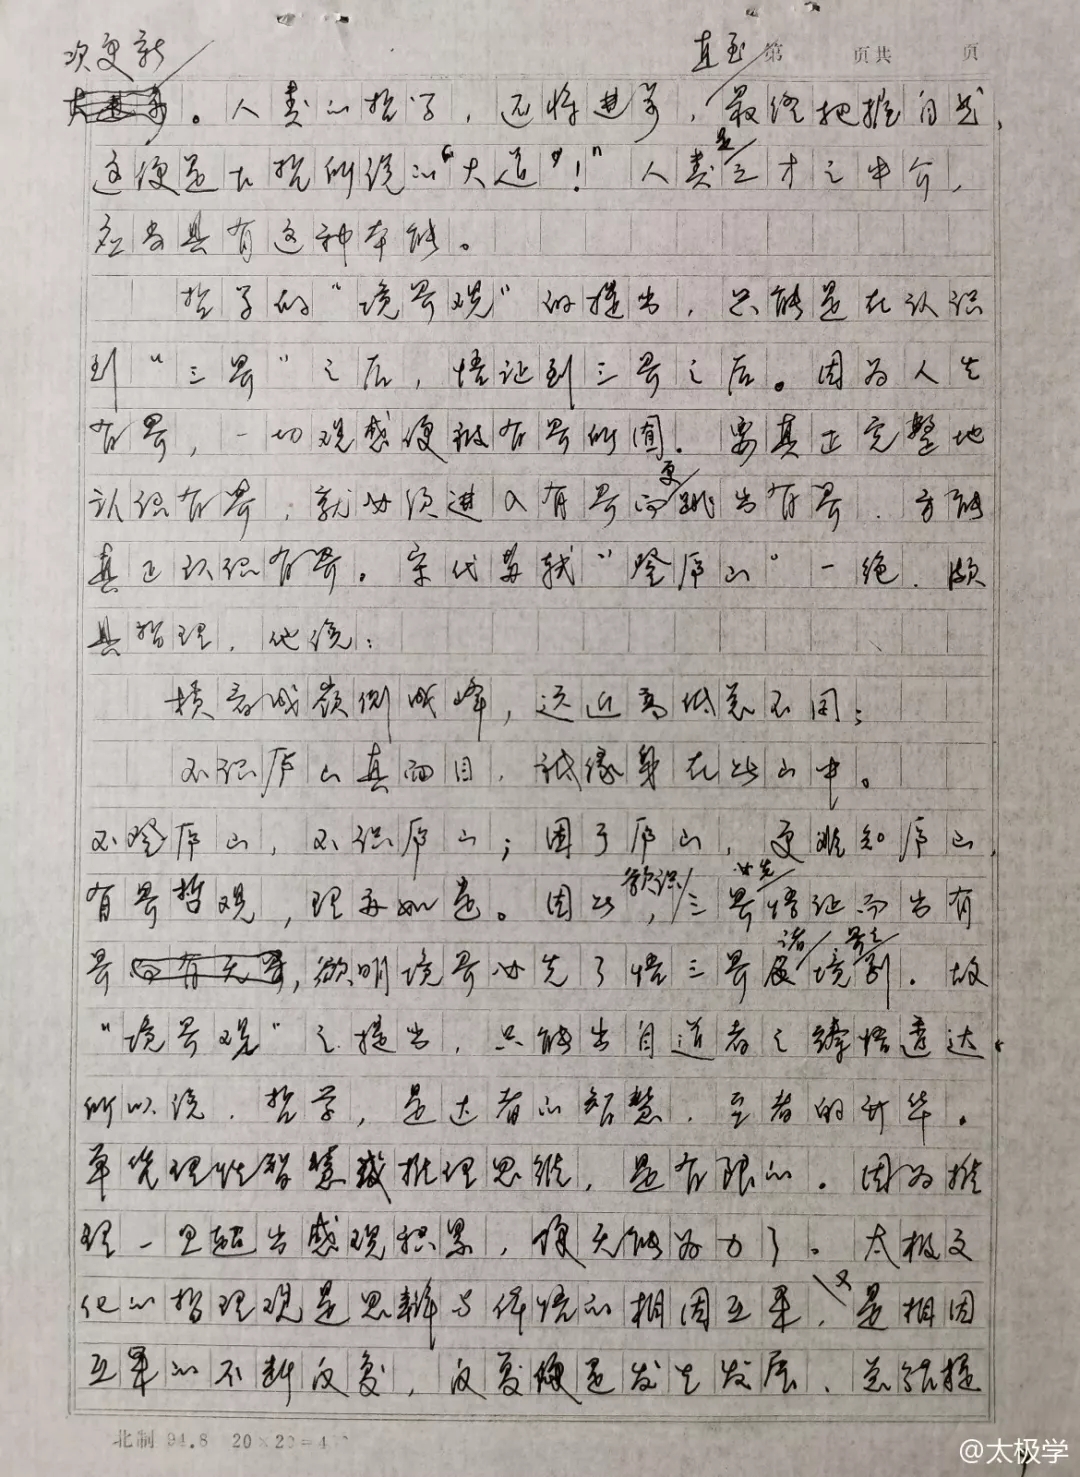 次更新 直至 第 页共 页
。人类的哲学，还将进步，最终把握自然，
这便是古哲所说的“大道”！人类是三才之中介，
应当具有这种本能。
哲学的“境界观”的提出，只能是在认识
到“三界”之后，悟证到三界之后。因为人生
有界，一切观感便被有界所囿。要真正完整地
认识有界，就必须进入有界而更跳出有界，方能
真正认识有界。宋代苏轼“登庐山”一绝，颇
具哲理，他说：
横看成岭侧成峰，远近高低总不同；
不识庐山真面目，诚缘身在此山中。
不登庐山，不识庐山；困于庐山，更难知庐山，
有界哲观，理亦如是。因此，欲识三界必先悟证而出有
界，欲明境界必先了悟三界诸境界之别。故
“境界观”之提出，只能出自道者之彻悟透达。
所以说，哲学，是达者的智慧，至者的升华。
单凭理性智慧或推理思维，是有限的。因为推
理一旦超出感观积累，便无能为力了。太极文
化的哲理观是思辨与体悟的相因互果，又是相因
互果的不断反复，反复便是发生发展、总结提
北制 94.8 20×20=4
@太极学